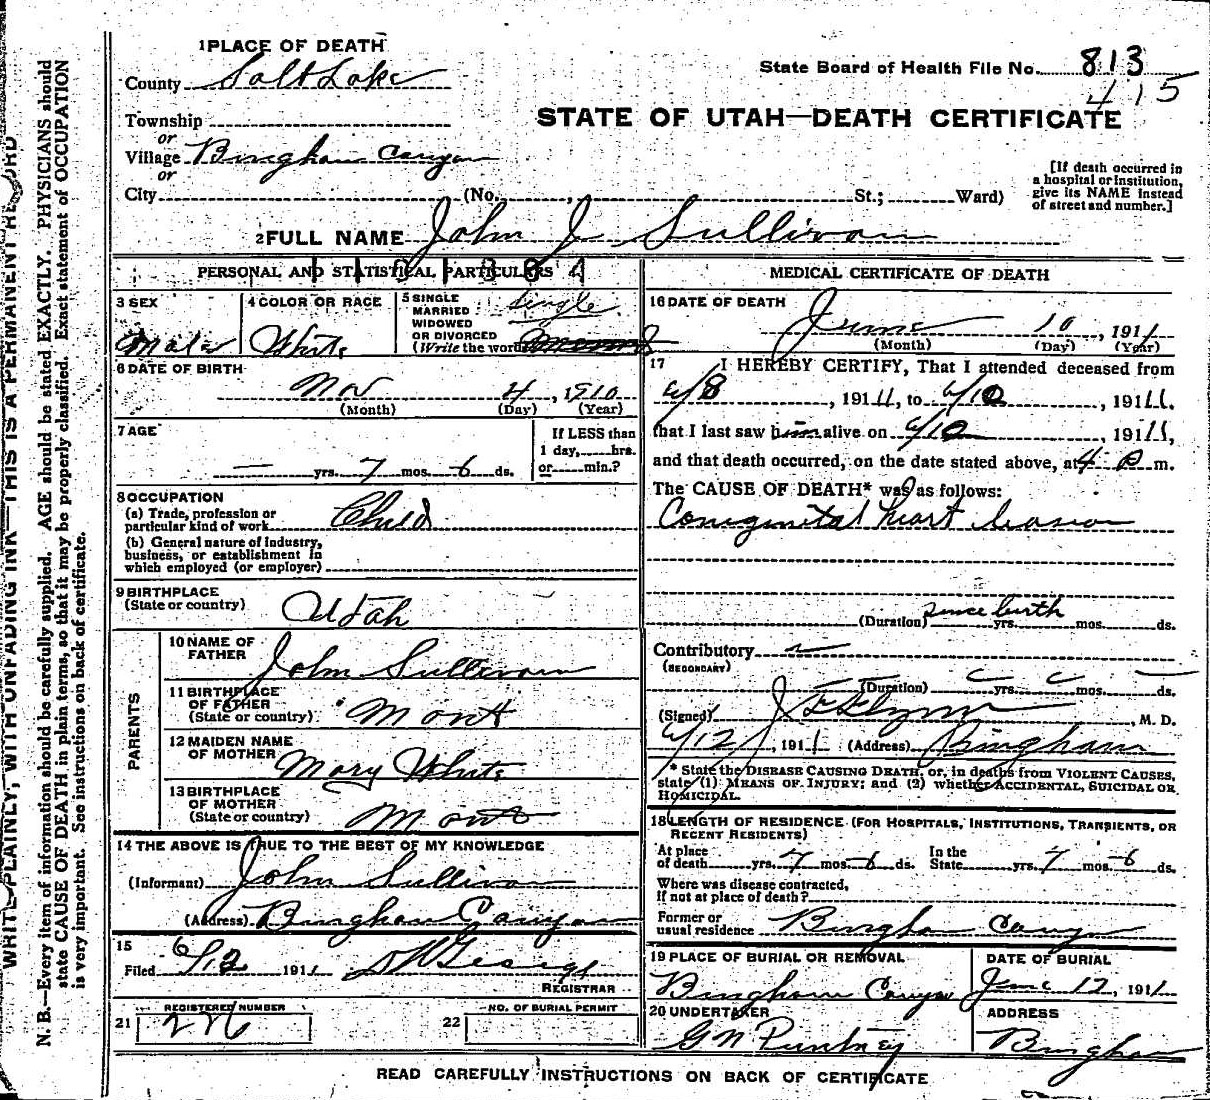 1 PLACE OF DEATH
County Salt Lake
State Board of Health File No. 813
415
Township
or
Village Bingham Canyon
or
City (No. , St.; Ward)
STATE OF UTAH—DEATH CERTIFICATE
[If death occurred in
a hospital or institution,
give its NAME instead
of street and number.]
2 FULL NAME John J Sullivan
PERSONAL AND STATISTICAL PARTICULARS
3 SEX
Male
4 COLOR OR RACE
White
5 SINGLE
MARRIED
WIDOWED
OR DIVORCED
(Write the word)
Single
6 DATE OF BIRTH
Nov 4, 1910
(Month) (Day) (Year)
7 AGE
— yrs. 7 mos. 6 ds.
If LESS than
1 day, hrs.
or min.?
8 OCCUPATION
(a) Trade, profession or
particular kind of work Child
(b) General nature of industry,
business, or establishment in
which employed (or employer)
9 BIRTHPLACE
(State or country) Utah
PARENTS
10 NAME OF
FATHER John Sullivan
11 BIRTHPLACE
OF FATHER
(State or country) Mont
12 MAIDEN NAME
OF MOTHER Mary White
13 BIRTHPLACE
OF MOTHER
(State or country) Mont
14 THE ABOVE IS TRUE TO THE BEST OF MY KNOWLEDGE
(Informant) John Sullivan
(Address) Bingham Canyon
15
Filed 6/12 1911
REGISTRAR
REGISTERED NUMBER
21 226
NO. OF BURIAL PERMIT
22
MEDICAL CERTIFICATE OF DEATH
16 DATE OF DEATH
June 10, 1911
(Month) (Day) (Year)
17 I HEREBY CERTIFY, That I attended deceased from
6/8, 1911, to 6/10, 1911,
that I last saw him alive on 6/10, 1911,
and that death occurred, on the date stated above, at 4 P m.
The CAUSE OF DEATH* was as follows:
Congenital heart lesion
(Duration) since birth yrs. mos. ds.
Contributory
(SECONDARY)
(Duration) yrs. mos. ds.
(Signed) J F Flynn, M. D.
6/12, 1911 (Address) Bingham
* State the DISEASE CAUSING DEATH, or, in deaths from VIOLENT CAUSES,
state (1) MEANS OF INJURY; and (2) whether ACCIDENTAL, SUICIDAL OR
HOMICIDAL.
18 LENGTH OF RESIDENCE (FOR HOSPITALS, INSTITUTIONS, TRANSIENTS, OR
RECENT RESIDENTS)
At place
of death yrs. 7 mos. 6 ds.
In the
State yrs. 7 mos. 6 ds.
Where was disease contracted,
if not at place of death?
Former or
usual residence Bingham Canyon
19 PLACE OF BURIAL OR REMOVAL
Bingham Canyon
DATE OF BURIAL
June 12, 1911
20 UNDERTAKER
G N Puntney
ADDRESS
Bingham
READ CAREFULLY INSTRUCTIONS ON BACK OF CERTIFICATE
WRITE PLAINLY, WITH UNFADING INK—THIS IS A PERMANENT RECORD
N. B.—Every item of information should be carefully supplied. AGE should be stated EXACTLY. PHYSICIANS should
state CAUSE OF DEATH in plain terms, so that it may be properly classified. Exact statement of OCCUPATION
is very important. See instructions on back of certificate.